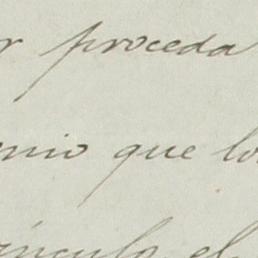 r proceda
nio que lo
vínculo el